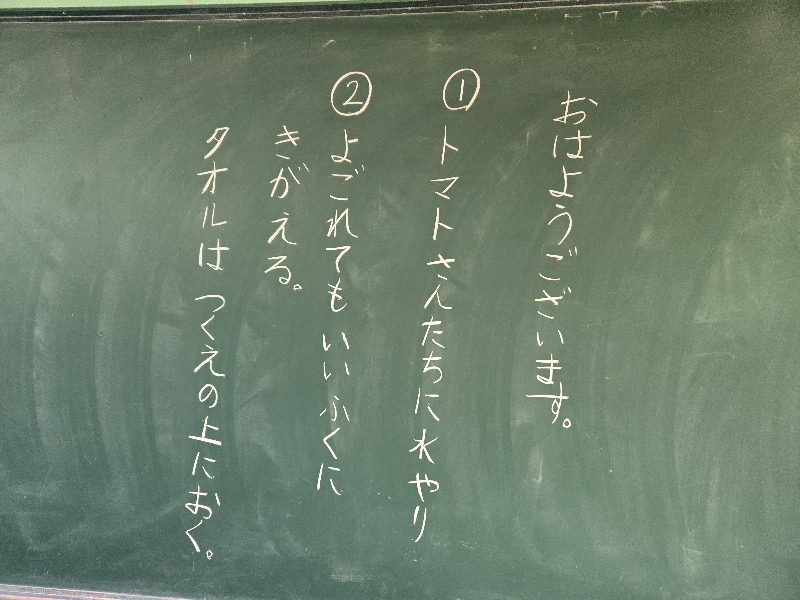 おはようございます。
①トマトさんたちに水やり
②よごれてもいいふくに
きがえる。
タオルは つくえの上におく。